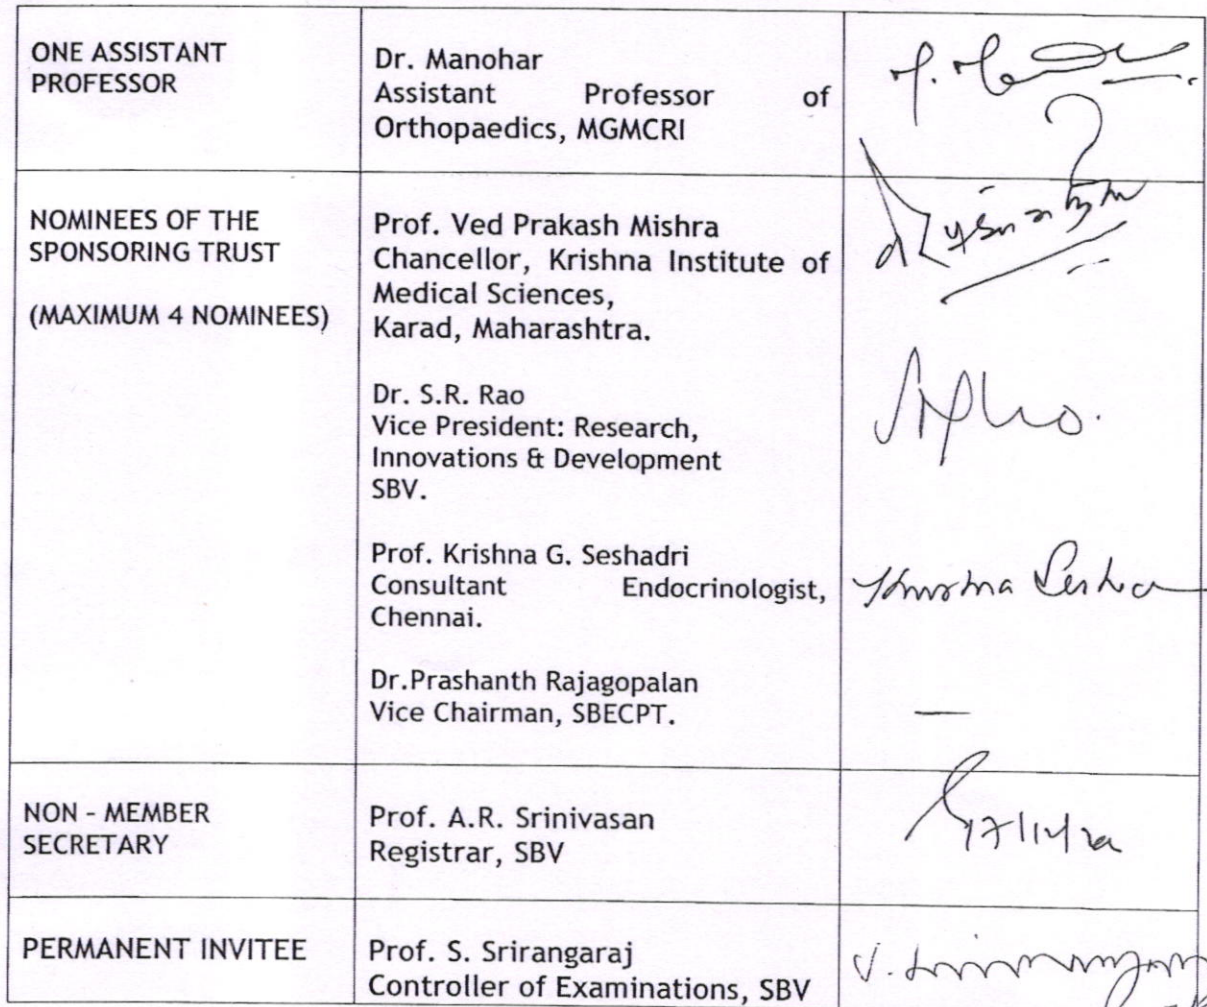 ONE ASSISTANT
PROFESSOR
Dr. Manohar
Assistant Professor of
Orthopaedics, MGMCRI
NOMINEES OF THE
SPONSORING TRUST
(MAXIMUM 4 NOMINEES)
Prof. Ved Prakash Mishra
Chancellor, Krishna Institute of
Medical Sciences,
Karad, Maharashtra.
Dr. S.R. Rao
Vice President: Research,
Innovations & Development
SBV.
Prof. Krishna G. Seshadri
Consultant Endocrinologist,
Chennai.
Krishna Sesha
Dr.Prashanth Rajagopalan
Vice Chairman, SBECPT.
—
NON - MEMBER
SECRETARY
Prof. A.R. Srinivasan
Registrar, SBV
PERMANENT INVITEE
Prof. S. Srirangaraj
Controller of Examinations, SBV